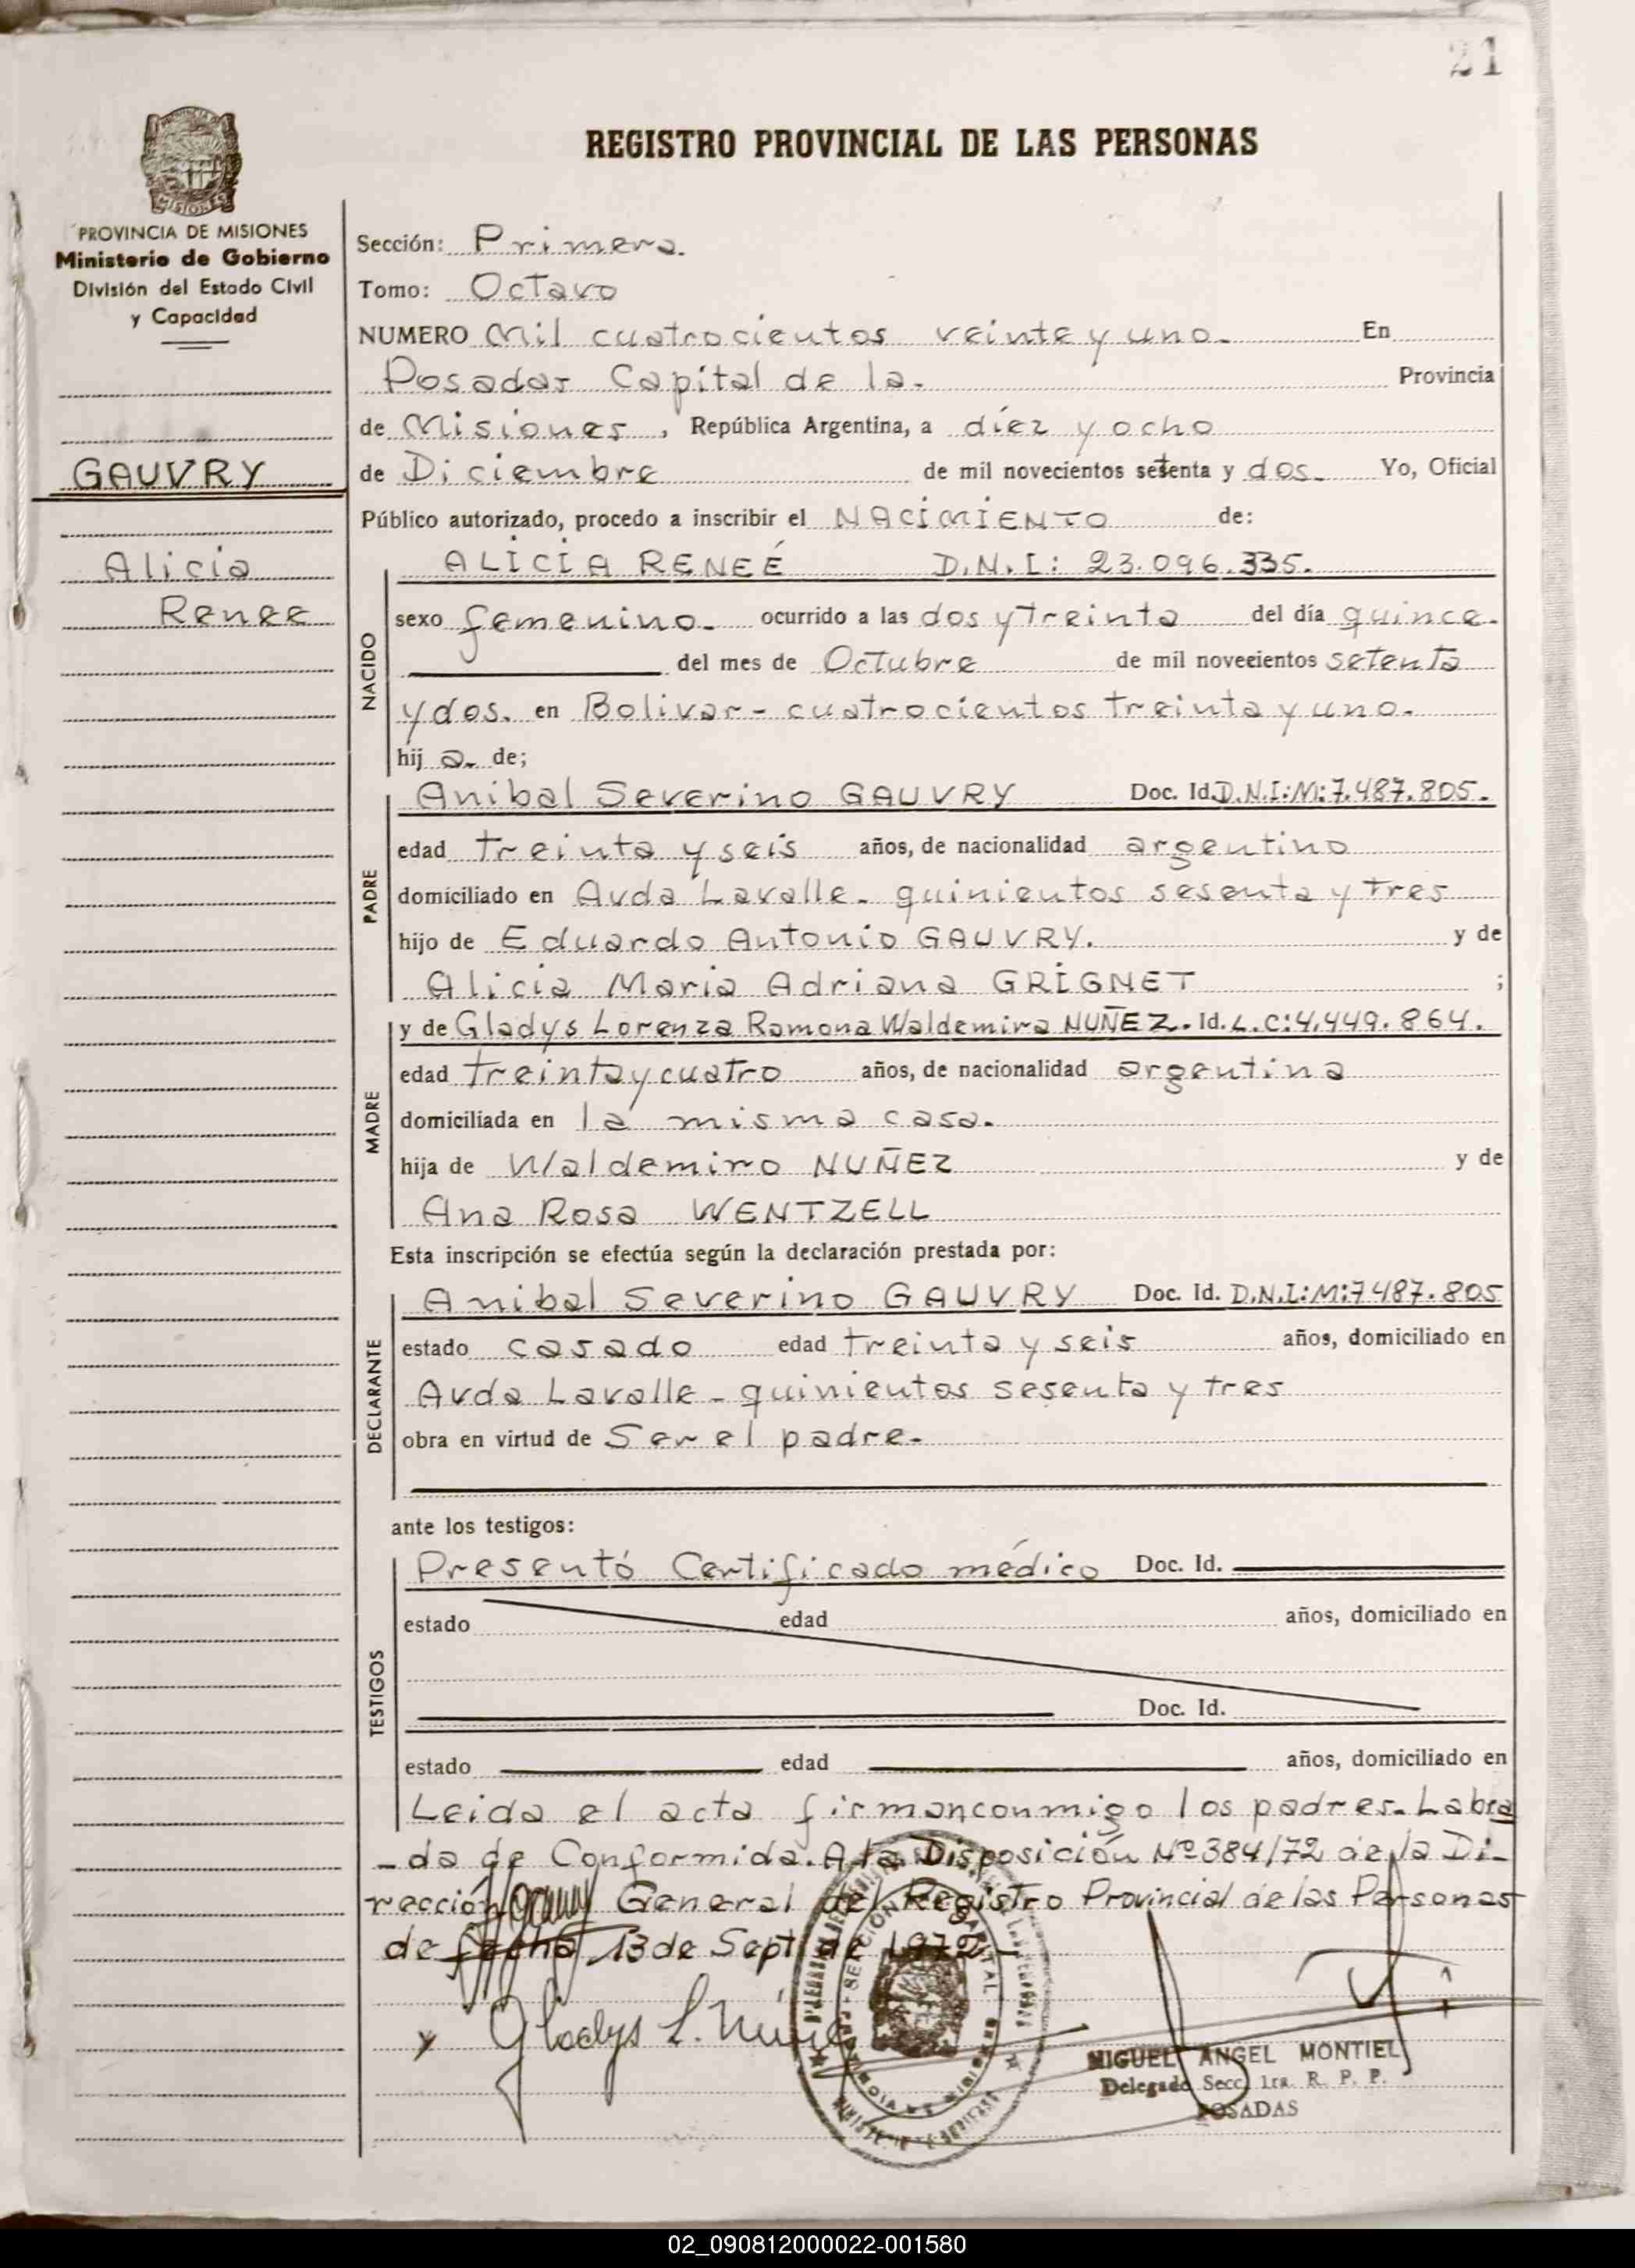 21
REGISTRO PROVINCIAL DE LAS PERSONAS
PROVINCIA DE MISIONES
Ministerio de Gobierno
División del Estado Civil
y Capacidad
GAUVRY
Alicia
Renee
Sección: Primera.
Tomo: Octavo
NUMERO Mil cuatrocientos veinte y uno. En
Posadas Capital de la. Provincia
de Misiones, República Argentina, a diez y ocho
de Diciembre de mil novecientos setenta y dos. Yo, Oficial
Público autorizado, procedo a inscribir el NACIMIENTO de:
ALICIA RENEÉ D.N.I: 23.096.335.
NACIDO
sexo femenino. ocurrido a las dos y treinta del día quince.
del mes de Octubre de mil novecientos setenta
y dos. en Bolivar - cuatrocientos treinta y uno.
hij a. de;
PADRE
Anibal Severino GAUVRY Doc. Id. D.N.I:M:7.487.805.
edad treinta y seis años, de nacionalidad argentino
domiciliado en Avda Lavalle. quinientos sesenta y tres
hijo de Eduardo Antonio GAUVRY. y de
Alicia Maria Adriana GRIGNET ;
MADRE
y de Gladys Lorenza Ramona Waldemira NUÑEZ. Id. L.C:4.449.864.
edad treinta y cuatro años, de nacionalidad argentina
domiciliada en la misma casa.
hija de Waldemiro NUÑEZ y de
Ana Rosa WENTZELL
Esta inscripción se efectúa según la declaración prestada por:
DECLARANTE
Anibal Severino GAUVRY Doc. Id. D.N.I:M:7487.805
estado casado edad treinta y seis años, domiciliado en
Avda Lavalle - quinientos sesenta y tres
obra en virtud de Ser el padre.
ante los testigos:
TESTIGOS
Presentó Certificado médico Doc. Id.
estado edad años, domiciliado en
Doc. Id.
estado edad años, domiciliado en
Leida el acta firman conmigo los padres. Labra
-da de Conformida. A la Disposición Nº 384/72 de la Di-
rección General del Registro Provincial de las Personas
de fecha 13 de Sept de 1972 -
Gladys L. Núñez
MIGUEL ANGEL MONTIEL
Delegado Secc. 1ra. R. P. P.
POSADAS
02_090812000022-001580